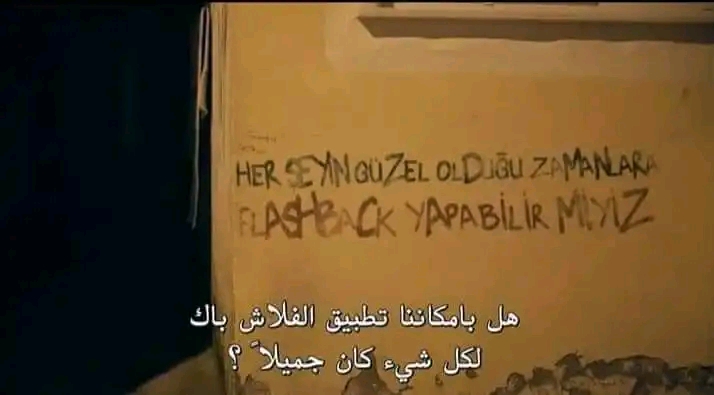 HER ŞEYİN GÜZEL OLDUĞU ZAMANLARA
FLASHBACK YAPABİLİR MİYİZ
هل بامكاننا تطبيق الفلاش باك
لكل شيء كان جميلاً ؟